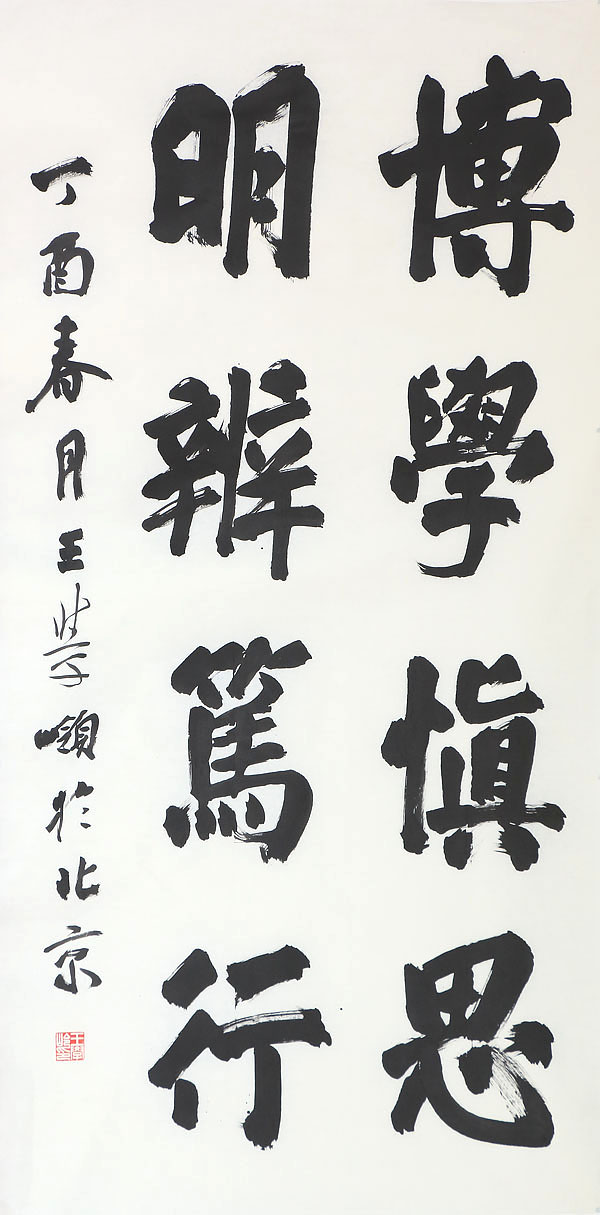 博學慎思
明辨篤行
丁酉春月王學嶺於北京
王學嶺印